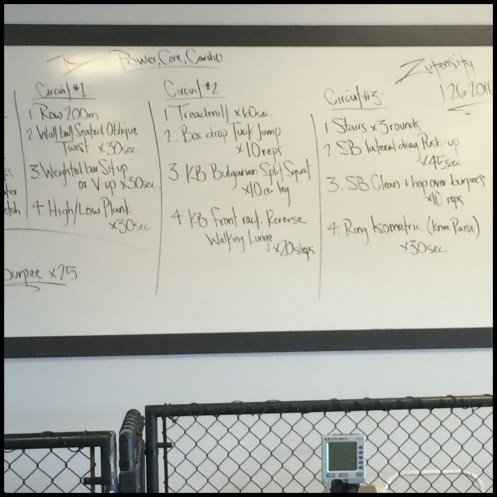 Power, Core, Cardio
Zutensity
1.26.201
Circuit #1
1 Row 200m
2 Wall ball Seated Oblique
Twist x30sec
3 Weighted bar Sit up
or V up x30sec
4 High/Low Plank
x30sec
burpee x25
Circuit #2
1 Treadmill x60sec
2. Box drop Tuck Jump
x10 reps
3 KB Bulgarian Split Squat
x10 ea leg
4 KB front rack Reverse
Walking Lunge
x20 steps
Circuit #3
1 Stairs x3 rounds
2 SB lateral drag Push-up
x45sec
3. SB Clean + hop over burpees
x10 reps
4. Ring Isometric (Knee Raise)
x30sec